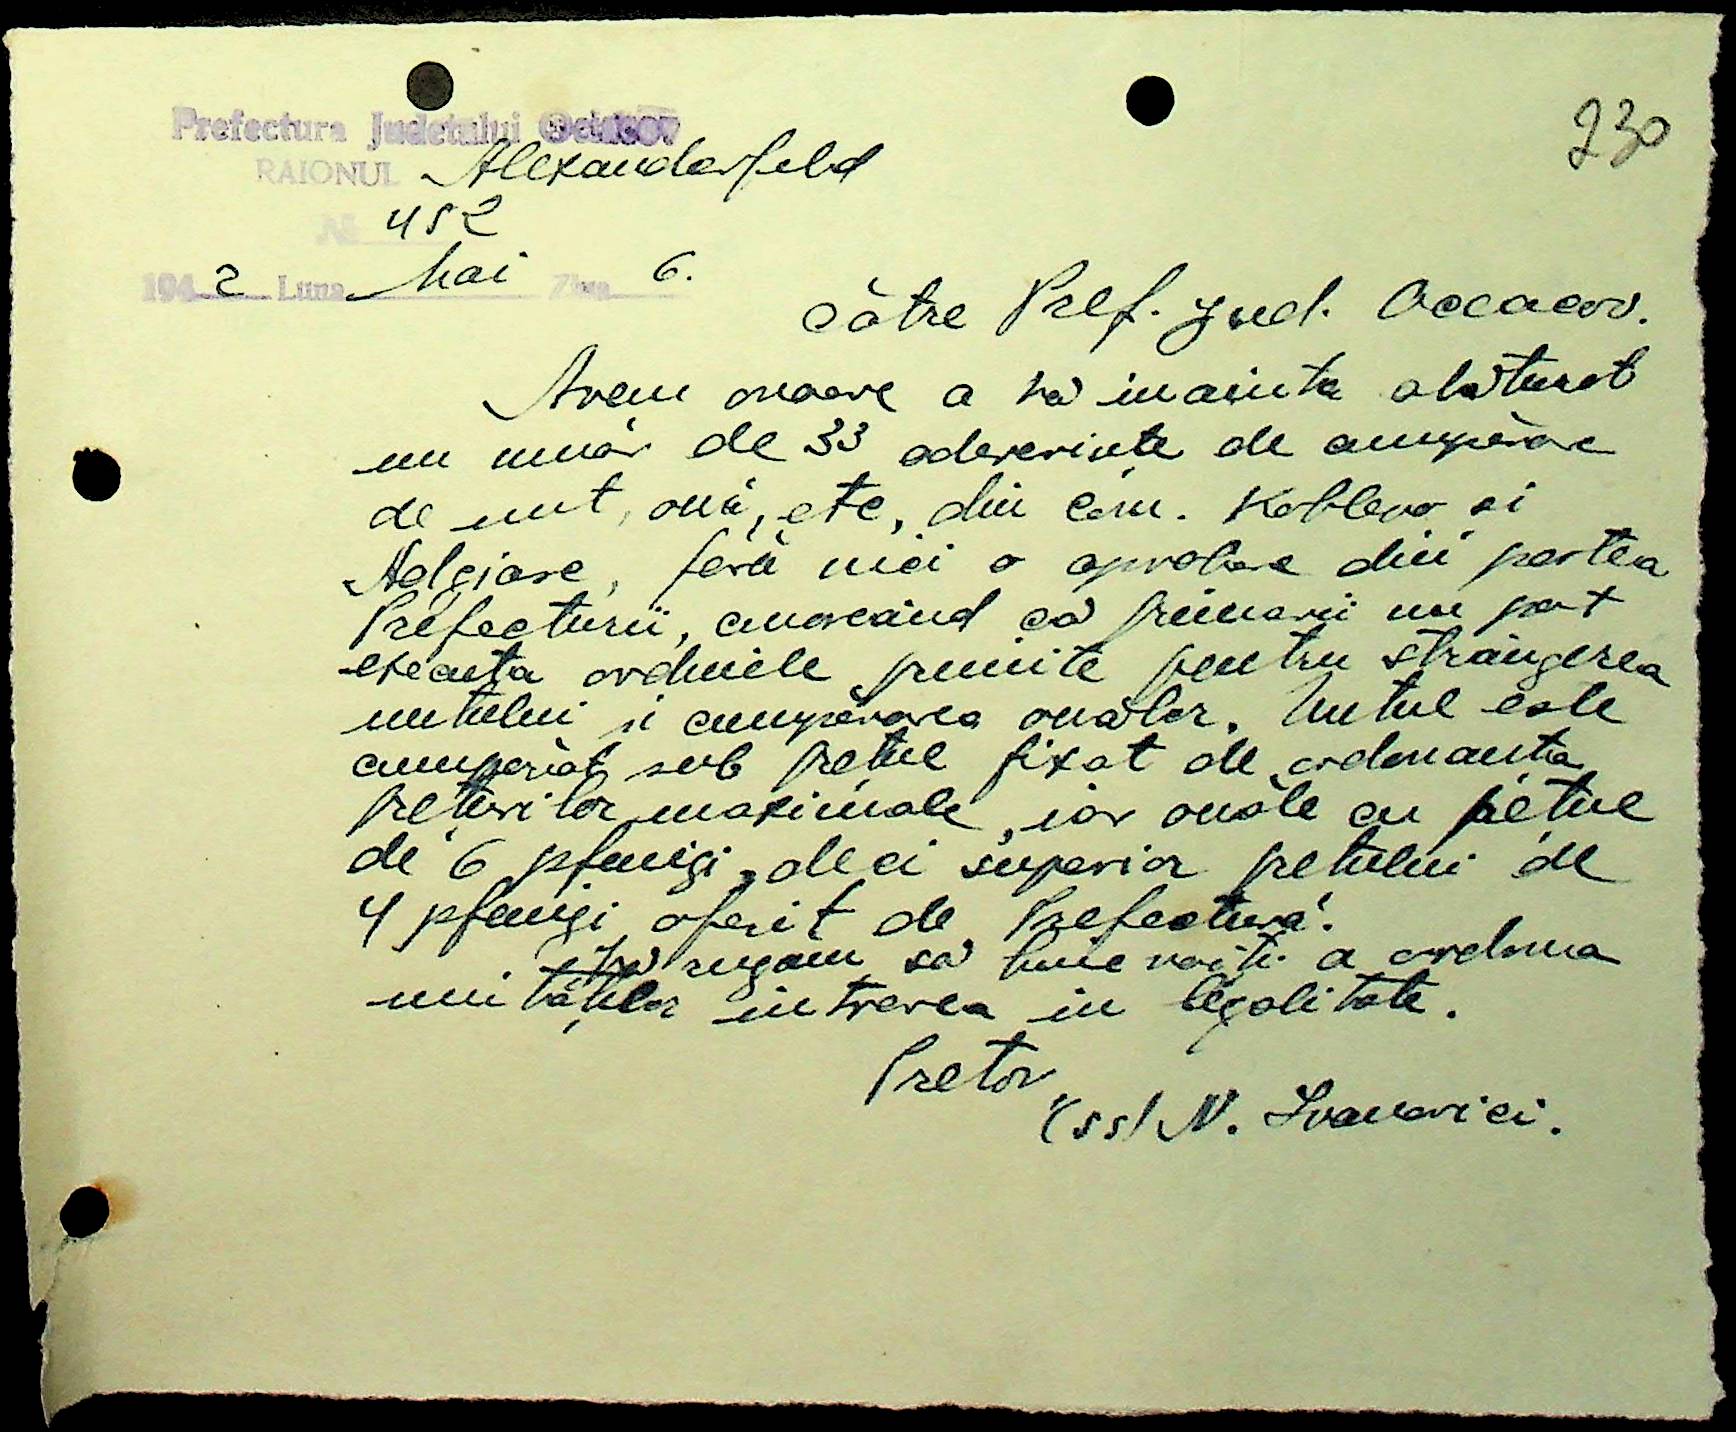 230
Prefectura Județului Oceacov
RAIONUL Alexanderfeld
№ 452
1942 Luna Mai Ziua 6.
Către Pref. Jud. Oceacov.
Avem onoare a vă inainta alăturat
un număr de 33 adeverințe de cumpărare
de unt, ouă, etc, din com. Koblevo si
Adgiase, fără nici o aprobare din partea
Prefecturii, cunoscând că primarii nu pot
executa ordinele primite pentru strângerea
untului si cumpărarea ouălor. Untul este
cumpărat sub prețul fixat de ordonanța
prețurilor maximale, iar ouăle cu prețul
de 6 pfenigi, deci superior prețului de
4 pfenigi oferit de Prefectură.
Vă rugăm să bine voiți a ordona
unităților intrarea in legalitate.
Pretor
(ss) N. Ivanovici.